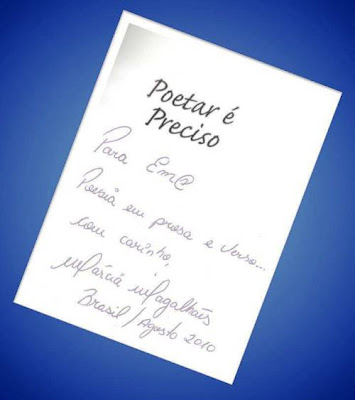 Poetar é
Preciso
Para Em@
Poesia em prosa e verso...
com carinho,
Márcia Magalhães
Brasil/Agosto 2010